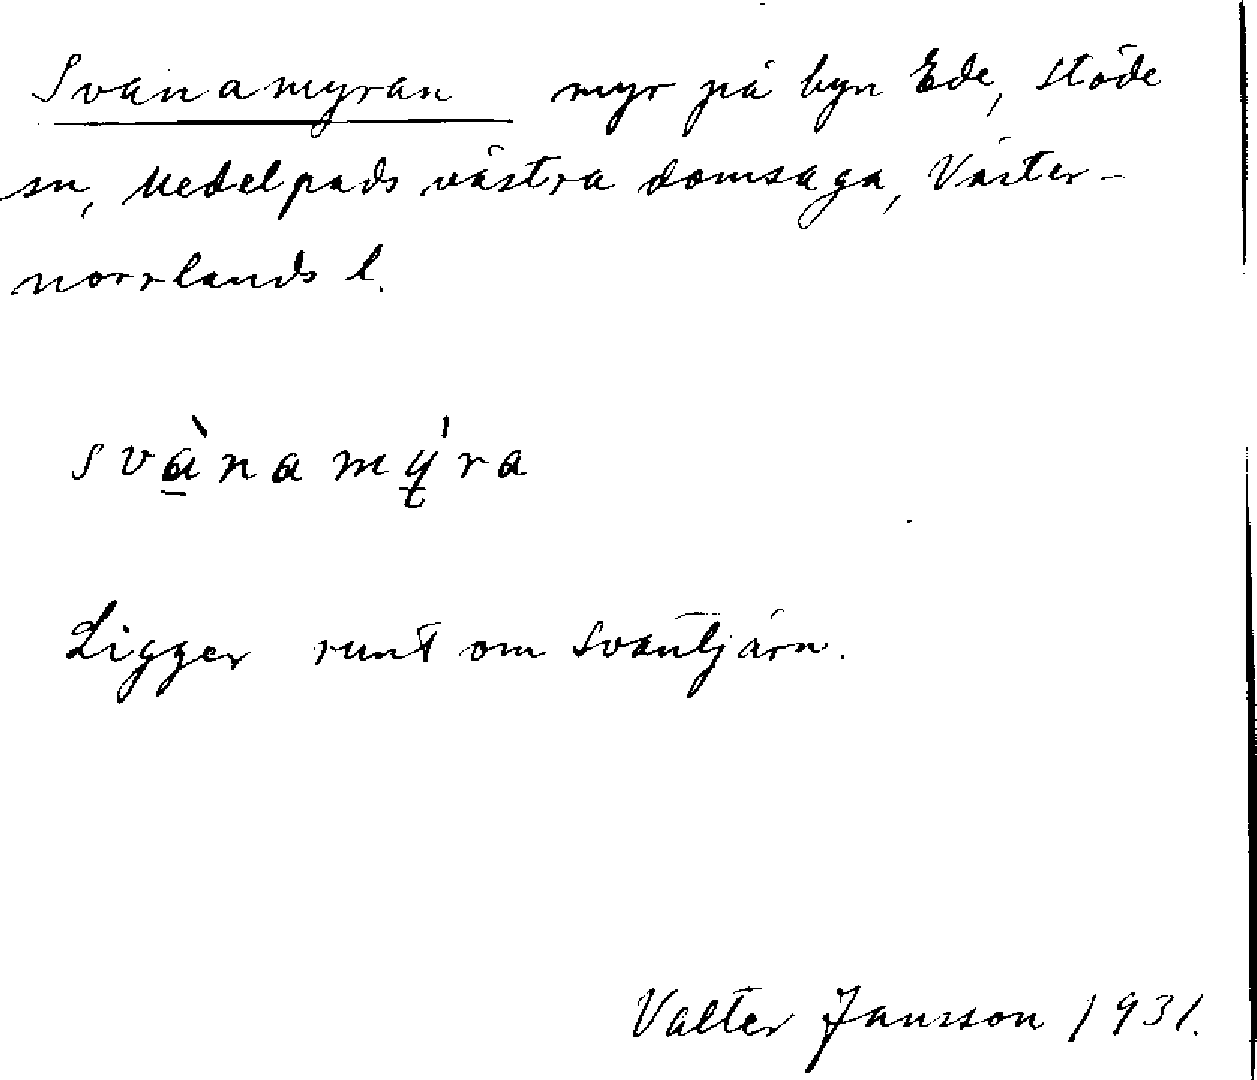 Svanamyran myr på byn Ede, Stöde
sn, Medelpads västra domsaga, Väster-
norrlands l.
svà̱namý̨ra
Ligger runt om Svantjärn.
Valter Jansson 1931.